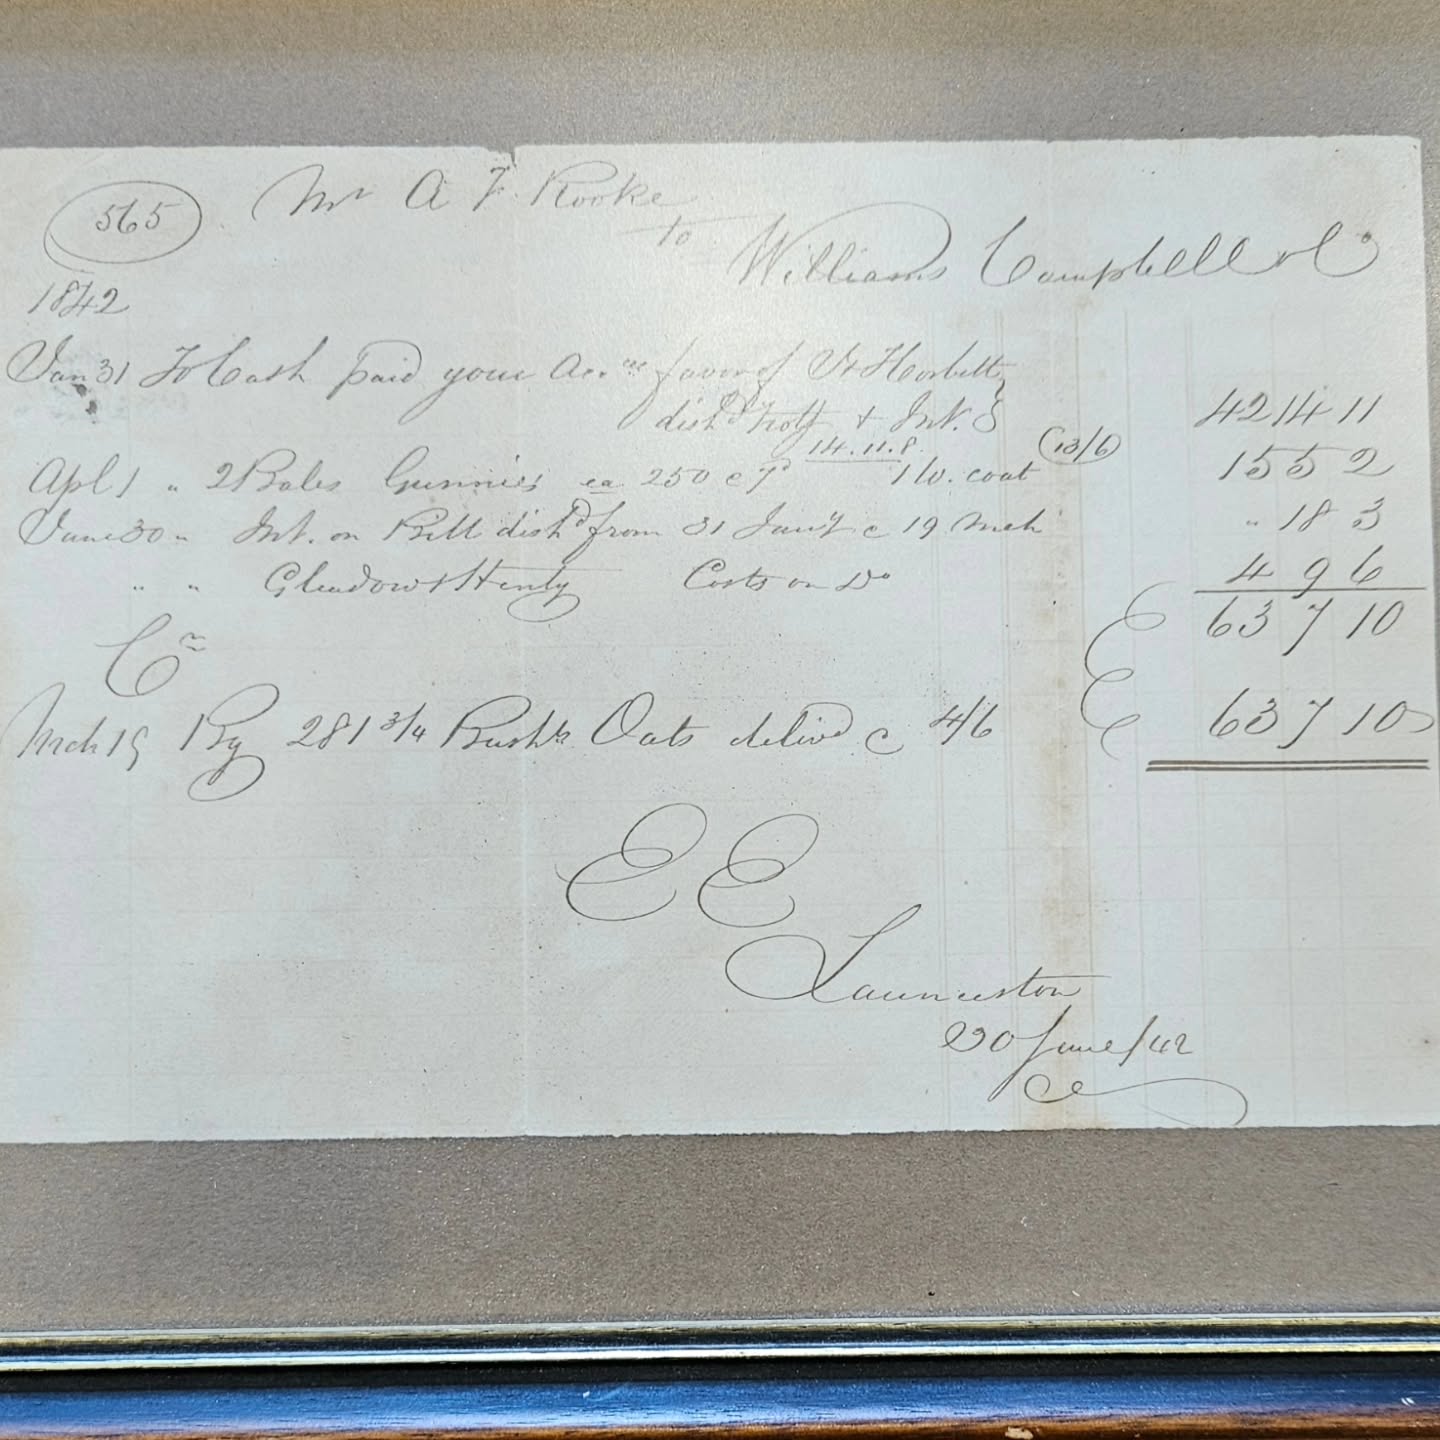 565 Mr A F. Rooke
to Williams Campbell & Co
1842
Jan 31 To Cash paid your Acc ce favor of
dish'd & Int. 42 14 11
14.11.8
Apl 1 " 2 Bales Gunnies ea 250 @ 7d 1 w. coat (13/6) 15 5 2
June 30 " Int. on Bill dish'd from 31 Jany @ 19 Mch " 18 3
" " Gleadow & Henty Costs on Do 4 9 6
£ 63 7 10
Cr
Mch 19 By 281 3/4 Bushls Oats deliv'd @ 4/6 £ 63 7 10
E E
Launceston
30 June/42